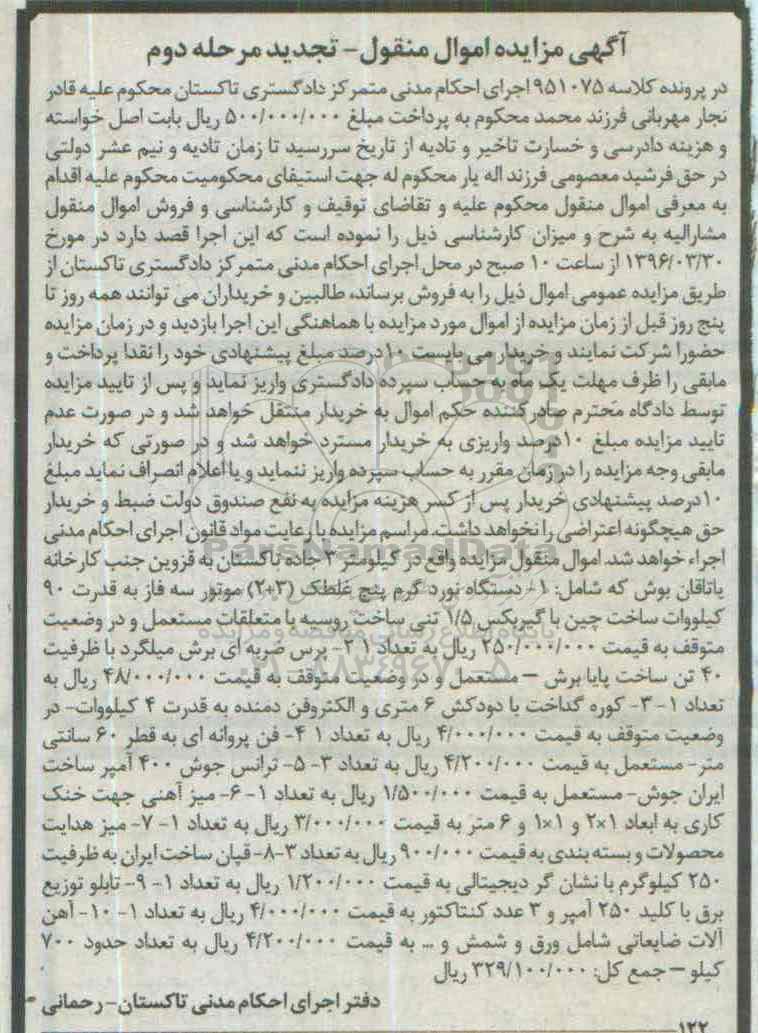 آگهی مزایده اموال منقول- تجدید مرحله دوم
در پرونده کلاسه ۹۵۱۰۷۵ اجرای احکام مدنی متمرکز دادگستری تاکستان محکوم علیه قادر
نجار مهربانی فرزند محمد محکوم به پرداخت مبلغ ۵۰۰/۰۰۰/۰۰۰ ریال بابت اصل خواسته
و هزینه دادرسی و خسارت تاخیر و تادیه از تاریخ سررسید تا زمان تادیه و نیم عشر دولتی
در حق فرشید معصومی فرزند اله یار محکوم له جهت استیفای محکومیت محکوم علیه اقدام
به معرفی اموال منقول محکوم علیه و تقاضای توقیف و کارشناسی و فروش اموال منقول
مشارالیه به شرح و میزان کارشناسی ذیل را نموده است که این اجرا قصد دارد در مورخ
۱۳۹۶/۰۳/۳۰ از ساعت ۱۰ صبح در محل اجرای احکام مدنی متمرکز دادگستری تاکستان از
طریق مزایده عمومی اموال ذیل را به فروش برساند، طالبین و خریداران می توانند همه روز تا
پنج روز قبل از زمان مزایده از اموال مورد مزایده با هماهنگی این اجرا بازدید و در زمان مزایده
حضورا شرکت نمایند و خریدار می بایست ۱۰درصد مبلغ پیشنهادی خود را نقدا پرداخت و
مابقی را ظرف مهلت یک ماه به حساب سپرده دادگستری واریز نماید و پس از تایید مزایده
توسط دادگاه محترم صادرکننده حکم اموال به خریدار منتقل خواهد شد و در صورت عدم
تایید مزایده مبلغ ۱۰درصد واریزی به خریدار مسترد خواهد شد و در صورتی که خریدار
مابقی وجه مزایده را در زمان مقرر به حساب سپرده واریز ننماید و یا اعلام انصراف نماید مبلغ
۱۰درصد پیشنهادی خریدار پس از کسر هزینه مزایده به نفع صندوق دولت ضبط و خریدار
حق هیچگونه اعتراضی را نخواهد داشت. مراسم مزایده با رعایت مواد قانون اجرای احکام مدنی
اجراء خواهد شد. اموال منقول مزایده واقع در کیلومتر ۳ جاده تاکستان به قزوین جنب کارخانه
یاتاقان بوش که شامل: ۱- دستگاه نورد گرم پنج غلطک (۳+۲) موتور سه فاز به قدرت ۹۰
کیلووات ساخت چین با گیربکس ۱/۵ تنی ساخت روسیه با متعلقات مستعمل و در وضعیت
متوقف به قیمت ۲۵۰/۰۰۰/۰۰۰ ریال به تعداد ۱ ۲- پرس ضربه ای برش میلگرد با ظرفیت
۴۰ تن ساخت پایا برش – مستعمل و در وضعیت متوقف به قیمت ۴۸/۰۰۰/۰۰۰ ریال به
تعداد ۱- ۳- کوره گداخت با دودکش ۶ متری و الکتروفن دمنده به قدرت ۴ کیلووات- در
وضعیت متوقف به قیمت ۴/۰۰۰/۰۰۰ ریال به تعداد ۱ ۴- فن پروانه ای به قطر ۶۰ سانتی
متر- مستعمل به قیمت ۴/۲۰۰/۰۰۰ ریال به تعداد ۳- ۵- ترانس جوش ۴۰۰ آمپر ساخت
ایران جوش- مستعمل به قیمت ۱/۵۰۰/۰۰۰ ریال به تعداد ۱- ۶- میز آهنی جهت خنک
کاری به ابعاد ۱×۲ و ۱×۱ و ۶ متر به قیمت ۳/۰۰۰/۰۰۰ ریال به تعداد ۱- ۷- میز هدایت
محصولات و بسته بندی به قیمت ۹۰۰/۰۰۰ ریال به تعداد ۳-۸- قپان ساخت ایران به ظرفیت
۲۵۰ کیلوگرم با نشان گر دیجیتالی به قیمت ۱/۲۰۰/۰۰۰ ریال به تعداد ۱- ۹- تابلو توزیع
برق با کلید ۲۵۰ آمپر و ۳ عدد کنتاکتور به قیمت ۴/۰۰۰/۰۰۰ ریال به تعداد ۱- ۱۰- آهن
آلات ضایعاتی شامل ورق و شمش و ... به قیمت ۴/۲۰۰/۰۰۰ ریال به تعداد حدود ۷۰۰
کیلو – جمع کل: ۳۲۹/۱۰۰/۰۰۰ ریال
دفتر اجرای احکام مدنی تاکستان- رحمانی
۱۲۲
ParsNamadData
پایگاه اطلاع رسانی مناقصه و مزایده